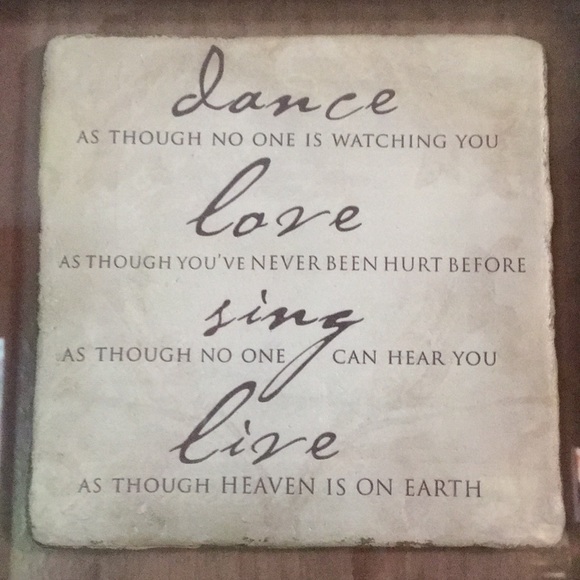 dance
AS THOUGH NO ONE IS WATCHING YOU
love
AS THOUGH YOU'VE NEVER BEEN HURT BEFORE
sing
AS THOUGH NO ONE CAN HEAR YOU
live
AS THOUGH HEAVEN IS ON EARTH